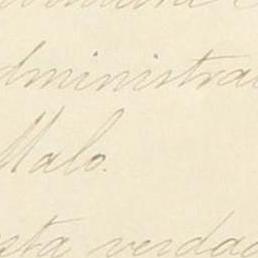 dministra
Malo.
sta verdad